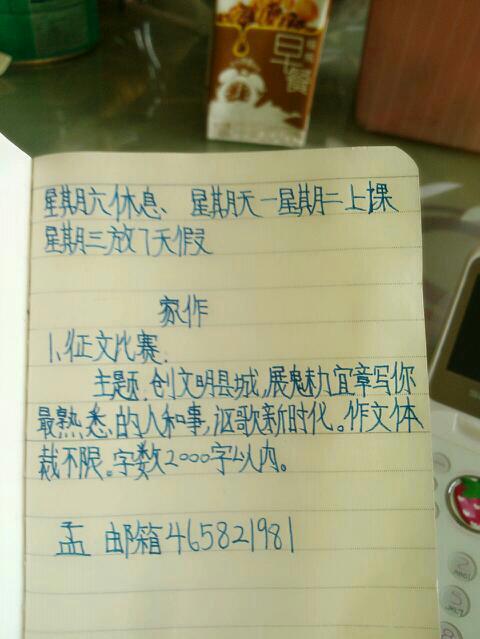 早餐
星期六休息、星期天一星期二上课
星期三放7天假
家作
1、征文比赛.
主题.创文明县城,展魅力宜章写你
最熟悉的人和事,讴歌新时化。作文体
裁不限。字数2000字以内。
孟 邮箱465821981